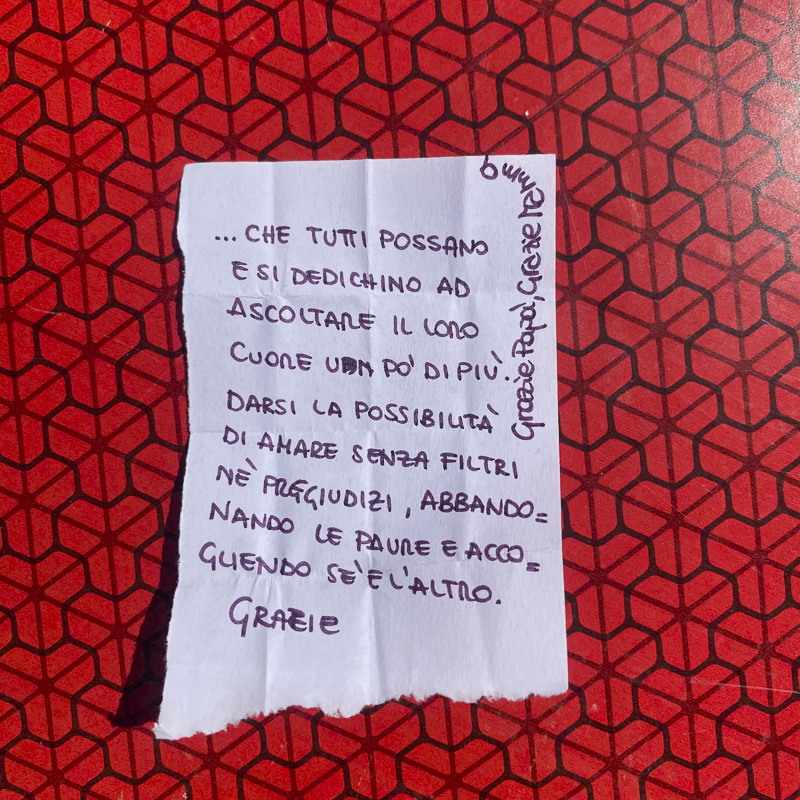 ... CHE TUTTI POSSANO
E SI DEDICHINO AD
ASCOLTARE IL LORO
CUORE UN PO' DI PIÙ.
DARSI LA POSSIBILITÀ
DI AMARE SENZA FILTRI
NÈ PREGIUDIZI, ABBANDO=
NANDO LE PAURE E ACCO=
GLIENDO SE' E L'ALTRO.
GRAZIE
Grazie Papà, Grazie Mamma